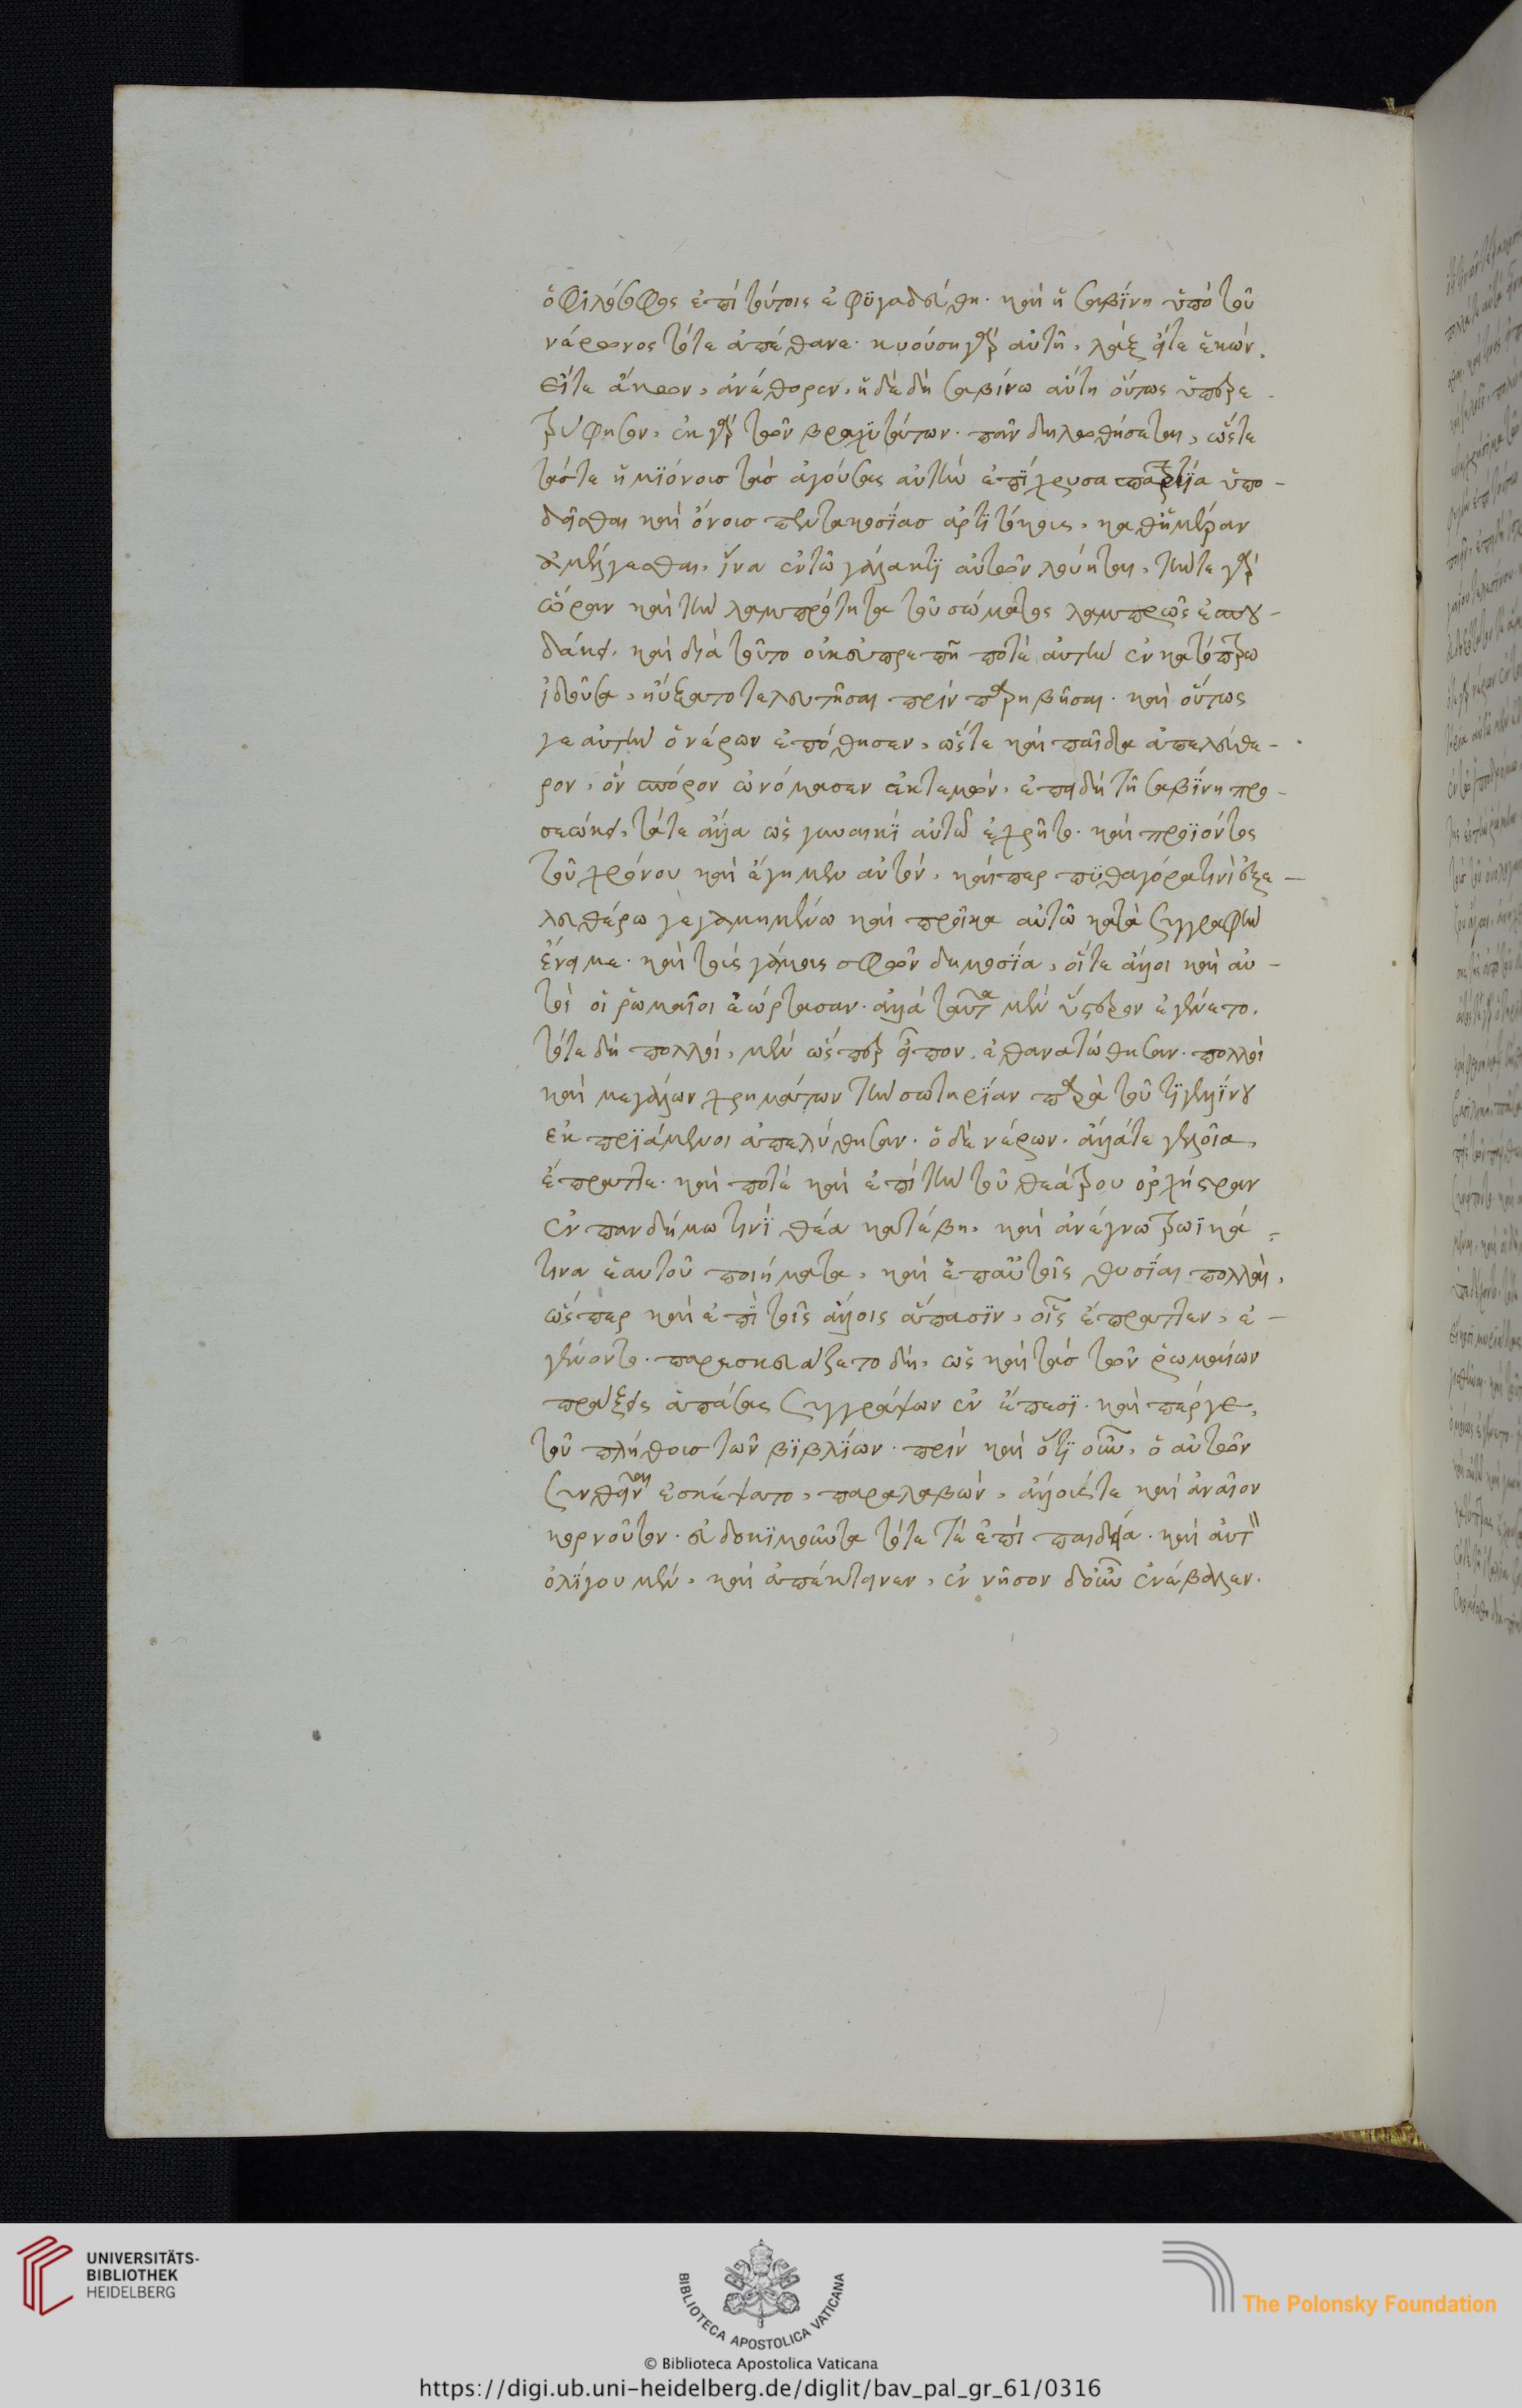 ὁ φιλόσοφος ἐπὶ τούτοις ἐφϋγαδεύθη· καὶ ἡ σαβῖνη ὑπὸ τοῦ
νέρωνος τότε ἀπέθανε· κυούσῃ γὰρ αὐτῆ, λὰξ εἴτε ἑκών,
εἴτε ἄκων, ἀνέθορεν, ἡ δὲ δὴ σαβίνα αὕτη οὕτως ὑπερε-
τρύφησεν, ἐκ γὰρ τῶν βραχυτάτων πᾶν δηλωθήσεται, ὥστε
τάς τε ἡμϊόνους τὰς ἀγούσας αὐτὴν ἐπίχρυσα σπαρτία ὑπο-
δεῖσθαι καὶ ὄνους πεντακοσΐας ἀρτιτόκους, καθημέραν
ἀμέλγεσθαι, ἵνα ἐν τῶ γάλακτι αὐτῶν λούηται, τήν τε γὰρ
ὥραν καὶ τὴν λαμπρότητα τοῦ σώματος λαμπρῶς ἐσπου-
δάκει, καὶ διὰ τοῦτο οὐκ εὐπρεπῆ ποτὲ αὐτὴν ἐν κατόπτρω
ἰδοῦσα, ηὔξατο τελευτῆσαι πρὶν παρηβῆσαι· καὶ οὕτως
γε αὐτὴν ὁ νέρων ἐπόθησεν, ὥστε καὶ παῖδα ἀπελεύθε-
ρον, ὃν σπόρον ὠνόμασεν ἐκτεμὼν, ἐπειδὴ τῆ σαβίνη προ-
σεώκει, τά τε ἄλλα ὡς γυναικὶ αὐτῶ ἐχρῆτο· καὶ προϊόντος
τοῦ χρόνου καὶ ἔγημεν αὐτὸν, καίπερ πυθαγόρα τινὶ ἐξε-
λευθέρω γεγαμημένω καὶ προῖκα αὐτῶ κατὰ συγγραφὴν
ἔνειμε· καὶ τοὺς γάμους σφῶν δημοσία, οἵτε ἄλλοι καὶ αὐ-
τοὶ οἱ ῥωμαῖοι ἑώρτασαν· ἀλλὰ ταῦτα μὲν ὕστερον ἐγένετο.
τότε δὴ πολλοὶ, μὲν ὥσπερ εἶπον, ἐθανατώθησαν· πολλοὶ
καὶ μεγάλων χρημάτων τὴν σωτηρίαν παρὰ τοῦ τιγελλίνου
ἐκπριάμενοι ἀπελύθησαν· ὁ δὲ νέρων, ἄλλά τε γελοῖα,
ἔπραττε· καὶ ποτὲ καὶ ἐπὶ τὴν τοῦ θεάτρου ὀρχήστραν
ἐν πανδήμω τινὶ θέα κατέβη, καὶ ἀνέγνω τρωϊκά
τινα ἑαυτοῦ ποιήματα, καὶ ἐπ' αὐτοῖς θυσίαι πολλαὶ,
ὥσπερ καὶ ἐπὶ τοῖς ἄλλοις ἅπασιν, οἷς ἔπραττεν, ἐ-
γένοντο. παρεσκευάζετο δὴ, ὡς καὶ τὰς τῶν ῥωμαίων
πράξεις ἁπάσας συγγράψων ἐν ἔπεσι· καὶ περί γε,
τοῦ πλήθους τῶν βιβλίων· πρὶν καὶ ὅτι οὖν, ὁ αὐτῶν
συνθεῖναι ἐσκέψατο, παραλαβὼν, ἄλλους τε καὶ ἀναῖον
κορνοῦτον· εὐδοκιμοῦντα τότε τὲ ἐπὶ παιδεία· καὶ αὐτὸν
ὀλίγου μὲν, καὶ ἀπέκτεινεν, ἐν νῆσον δοὖν ἐνέβαλεν.
UNIVERSITÄTS-
BIBLIOTHEK
HEIDELBERG
BIBLIOTECA APOSTOLICA VATICANA
The Polonsky Foundation
© Biblioteca Apostolica Vaticana
https://digi.ub.uni-heidelberg.de/diglit/bav_pal_gr_61/0316